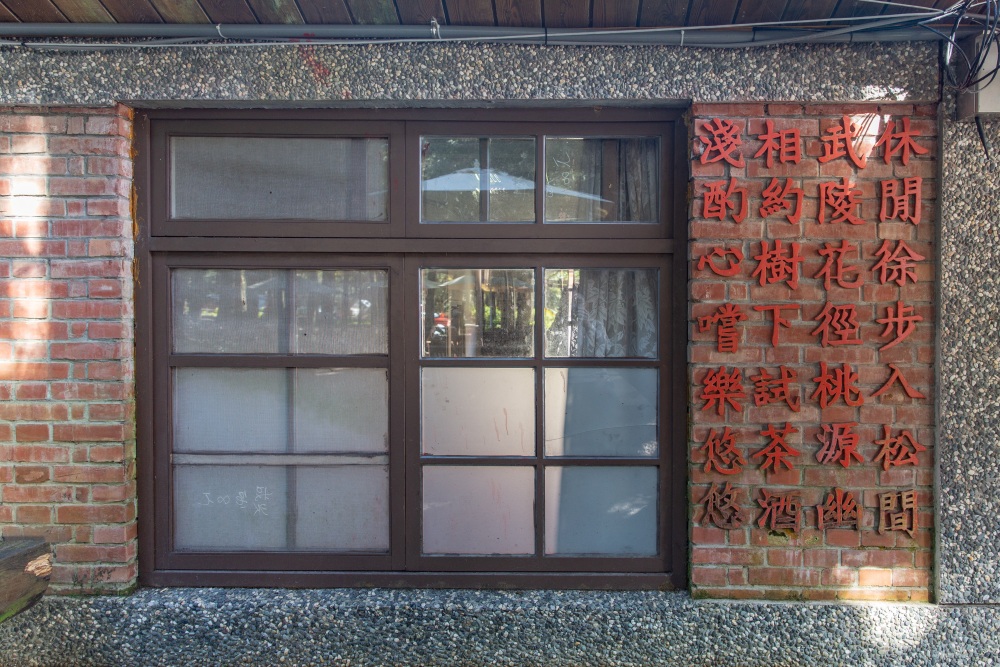 休閒徐步入松間
武陵花徑桃源幽
相約樹下試茶酒
淺酌心嚐樂悠悠